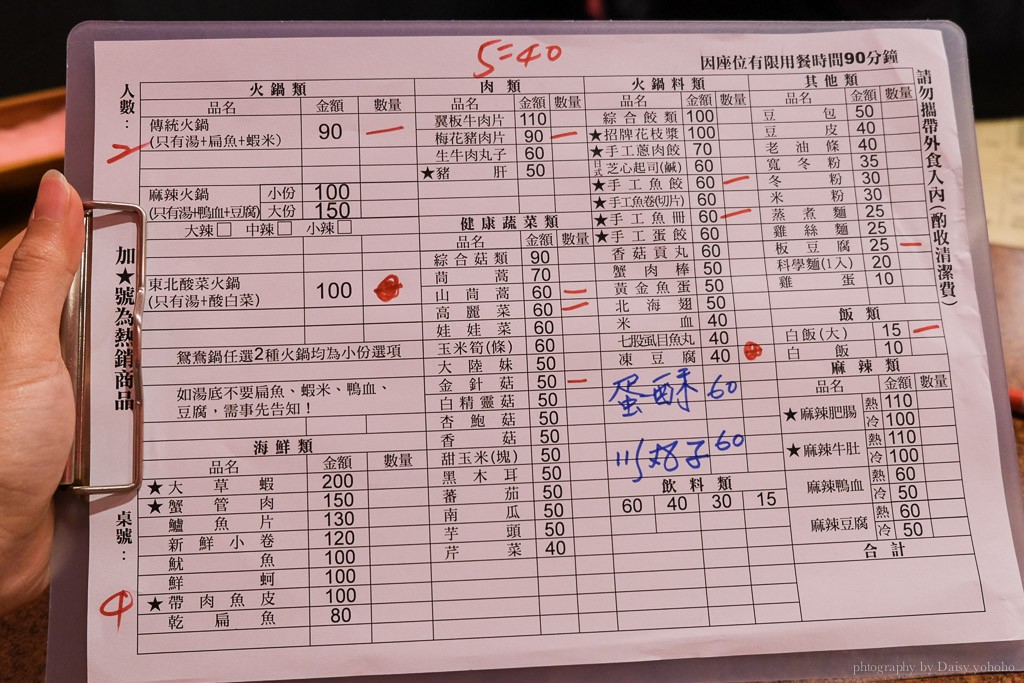 5=40
因座位有限用餐時間90分鐘
請勿攜帶外食入內(酌收清潔費)
人數：
2
加★號為熱銷商品
桌號：
4
火鍋類
品名 金額 數量
傳統火鍋 90 一
(只有湯+扁魚+蝦米)
麻辣火鍋 小份 100
(只有湯+鴨血+豆腐) 大份 150
大辣□ 中辣□ 小辣□
東北酸菜火鍋 100
(只有湯+酸白菜)
鴛鴦鍋任選2種火鍋均為小份選項
如湯底不要扁魚、蝦米、鴨血、
豆腐，需事先告知！
海鮮類
品名 金額 數量
★大草蝦 200
★蟹管肉 150
鱸魚片 130
新鮮小卷 120
魷魚 100
鮮蚵 100
★帶肉魚皮 100
乾扁魚 80
肉類
品名 金額 數量
翼板牛肉片 110
梅花豬肉片 90 一
生牛肉丸子 60
★豬肝 50
健康蔬菜類
品名 金額 數量
綜合菇類 90
茼蒿 70
山茼蒿 60 一
高麗菜 60 一
娃娃菜 60
玉米筍(條) 60
大陸妹 50
金針菇 50 一
白精靈菇 50
杏鮑菇 50
香菇 50
甜玉米(塊) 50
黑木耳 50
蕃茄 50
南瓜 50
芋頭 50
芹菜 40
火鍋料類
品名 金額 數量
綜合餃類 100
★招牌花枝漿 100
★手工蔥肉餃 70
日式芝心起司(鹹) 60
★手工魚餃 60 一
★手工魚卷(切片) 60
★手工魚冊 60 一
★手工蛋餃 60
香菇貢丸 60
蟹肉棒 50
黃金魚蛋 50
北海翅 50
米血 40
七股虱目魚丸 40
凍豆腐 40
蛋酥 60
60
飲料類
60 40 30 15
其他類
品名 金額 數量
豆包 50
豆皮 40
老油條 40
寬冬粉 35
冬粉 30
米粉 30
蒸煮麵 25
雞絲麵 25
板豆腐 25 一
科學麵(1入) 20
雞蛋 10
飯類
白飯(大) 15 一
白飯 10
麻辣類
品名 金額 數量
★麻辣肥腸 熱 110
冷 100
★麻辣牛肚 熱 110
冷 100
麻辣鴨血 熱 60
冷 50
麻辣豆腐 熱 60
冷 50
合計
phtography by Daisy yohoho